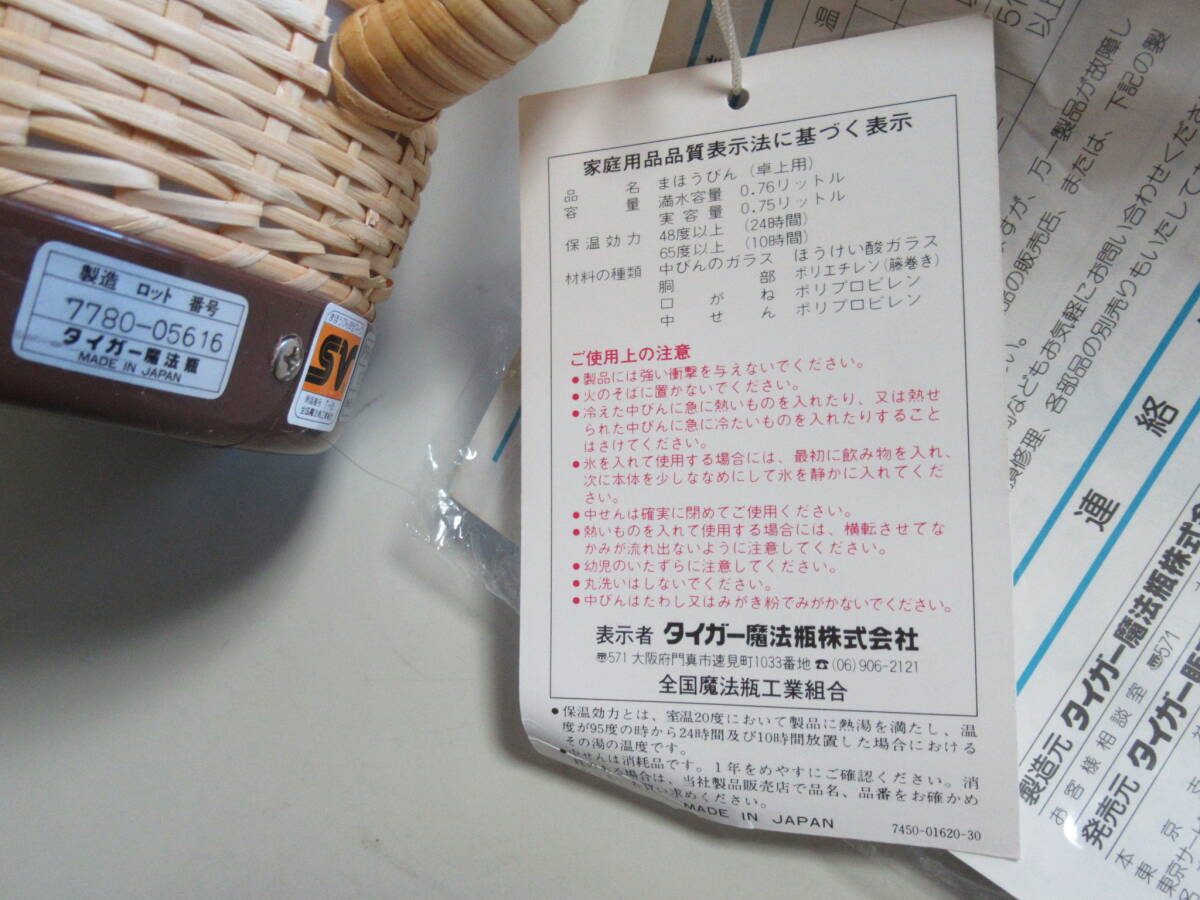 製造 ロット 番号
7780-05616
タイガー魔法瓶
MADE IN JAPAN
SV
家庭用品品質表示法に基づく表示
品名 まほうびん (卓上用)
容量 満水容量 0.76リットル
実容量 0.75リットル
保温効力 48度以上 (24時間)
65度以上 (10時間)
材料の種類 中びんのガラス ほうけい酸ガラス
胴部 ポリエチレン(籐巻き)
口がね ポリプロピレン
中せん ポリプロピレン
ご使用上の注意
●製品には強い衝撃を与えないでください。
●火のそばに置かないでください。
●冷えた中びんに急に熱いものを入れたり、又は熱せ
られた中びんに急に冷たいものを入れたりすること
はさけてください。
●氷を入れて使用する場合には、最初に飲み物を入れ、
次に本体を少しななめにして氷を静かに入れてくだ
さい。
●中せんは確実に閉めてご使用ください。
●熱いものを入れて使用する場合には、横転させてな
かみが流れ出ないように注意してください。
●幼児のいたずらに注意してください。
●丸洗いはしないでください。
●中びんはたわし又はみがき粉でみがかないでください。
表示者 タイガー魔法瓶株式会社
〠571 大阪府門真市速見町1033番地 ☎(06)906-2121
全国魔法瓶工業組合
●保温効力とは、室温20度において製品に熱湯を満たし、温
度が95度の時から24時間及び10時間放置した場合における
その湯の温度です。
●中せんは消耗品です。1年をめやすにご確認ください。消
場合は、当社製品販売店で品名、品番をお確かめ
求めください。
MADE IN JAPAN
7450-01620-30
温
以上
万一製品が故障し
の販売店、または、下記の製
などもお気軽にお問い合わせくださ
修理、各部品の別売りもいたして
連絡
製造元 タイガー魔法瓶株式
お客様相談室 〠571
発売元 タイガー